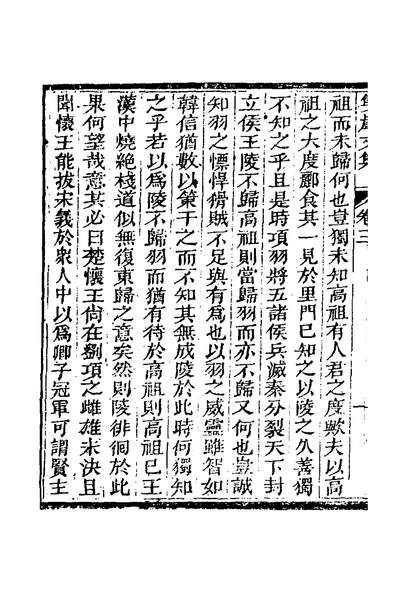 卷三
祖而未歸何也豈獨未知高祖有人君之度歟夫以高
祖之大度酈食其一見於里門已知之以陵之久善獨
不知之乎且是時項羽將五諸侯兵滅秦分裂天下封
立侯王陵不歸高祖則當歸羽而亦不歸又何也豈誠
知羽之慓悍猾賊不足與有為也以羽之威靈雖智如
韓信猶數以策干之而不知其無成陵於此時何獨知
之乎若以為陵不歸羽而猶有待於高祖則高祖已王
漢中燒絕棧道似無復東歸之意矣然則陵徘徊於此
果何望哉意其必曰楚懷王尚在劉項之雌雄未決且
聞懷王能拔宋義於衆人中以為卿子冠軍可謂賢主